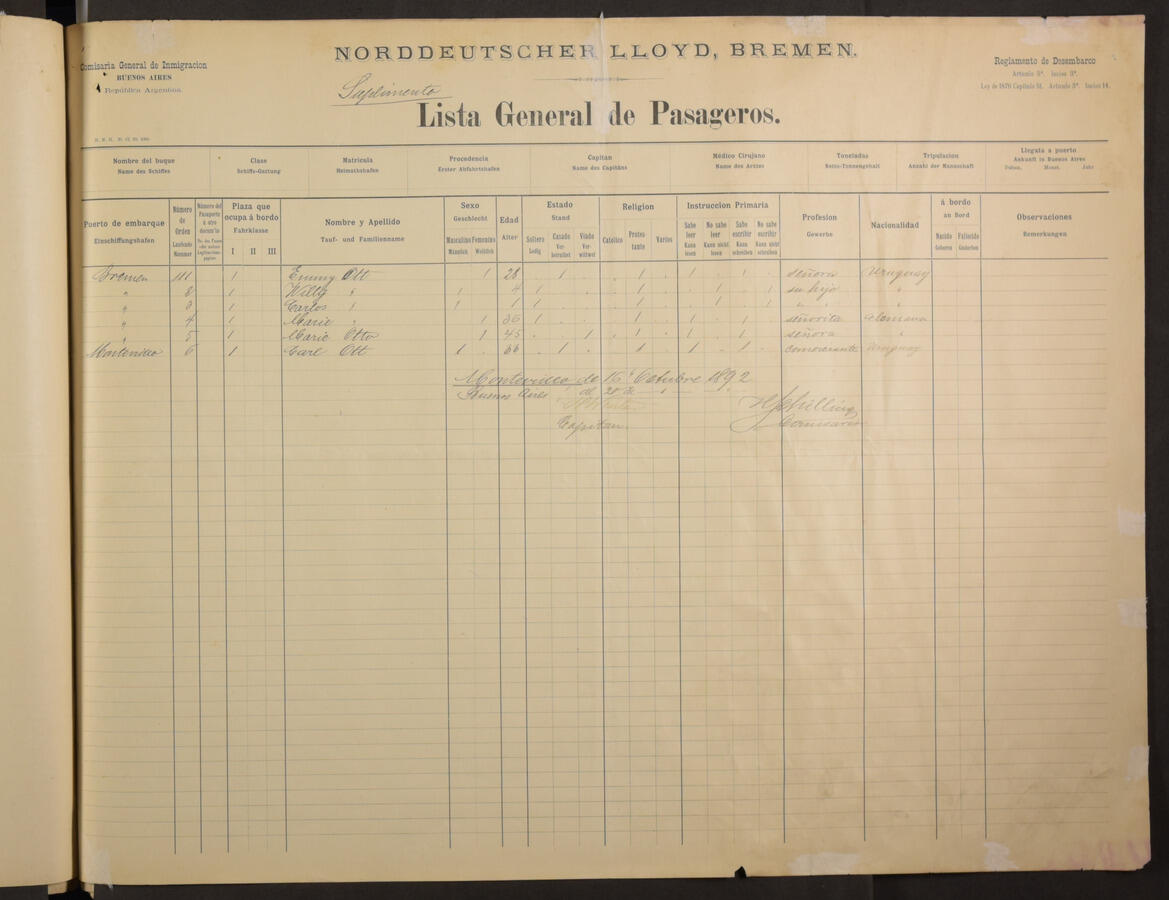 NORDDEUTSCHER LLOYD, BREMEN.
Comisaria General de Inmigracion
BUENOS AIRES
República Argentina.
Reglamento de Desembarco
Artenio 3º. Inciso 3º.
Ley de 1876 Capitulo 51. Articulo 3º. Inciso 14.
Suplimento
Lista General de Pasageros.
Nombre del buque Clase Matricula Procedencia Capitan Médico Cirujano Toneladas Tripulacion Llegata a puerto
Name des Schiffes Schiffs-Gattung Heimathshafen Erster Abfahrtshafen Name des Capitäns Name des Arztes Netto-Tonnengehalt Anzahl der Mannschaft Ankunft in Buenos Aires
Datum. Monat. Jahr
Puerto de embarque Número de Orden Número del Pasaporte Plaza que ocupa á bordo Nombre y Apellido Sexo Edad Estado Religion Instruccion Primaria Profesion Nacionalidad á bordo Observaciones
Einschiffungshafen Laufende Nummer Fahrklasse Tauf- und Familienname Geschlecht Alter Stand Gewerbe an Bord Bemerkungen
I II III Masculino Femenino Soltero Casado Viudo Católico Protestante Varios Sabe leer No sabe leer Sabe escribir No sabe escribir Nacido Fallecido
Männlich Weiblich Ledig Verheiratet Verwittwet Kann lesen Kann nicht lesen Kann schreiben Kann nicht schreiben Geboren Gestorben
Bremen 1 1 Emmy Ott 1 28 1 1 1 1 señora Uruguay
" 2 1 Willy " 1 4 1 1 1 1 su hijo "
" 3 1 Carlos " 1 1 1 1 1 1 " " "
" 4 1 Marie " 1 1 1 1 1 señorita Alemana
" 5 1 Marie Otto 1 45 1 1 1 1 señora "
Montevideo 6 1 Carl Ott 1 66 1 1 1 1 comerciante Uruguay
Montevideo, de 16 Octubre 1892
Buenos Aires de 20 de " "
Capitan
H Schilling
Comisario